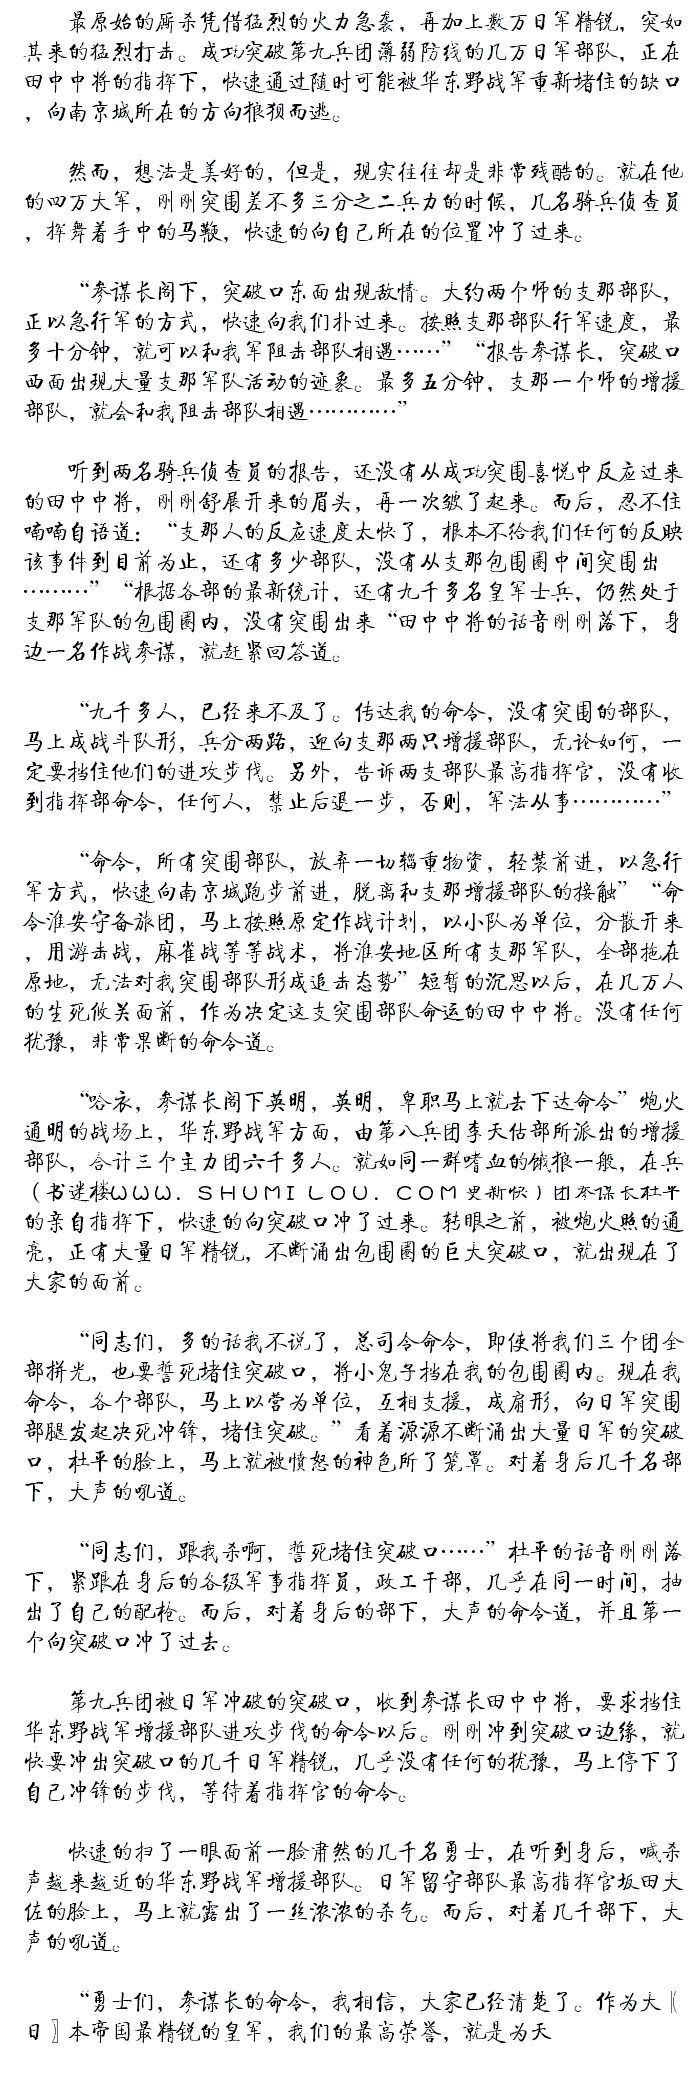 最原始的厮杀凭借猛烈的火力急袭，再加上数万日军精锐，突如
其来的猛烈打击。成功突破第九兵团薄弱防线的几万日军部队，正在
田中中将的指挥下，快速通过随时可能被华东野战军重新堵住的缺口
，向南京城所在的方向狼狈而逃。
然而，想法是美好的，但是，现实往往却是非常残酷的。就在他
的四万大军，刚刚突围差不多三分之二兵力的时候，几名骑兵侦查员
，挥舞着手中的马鞭，快速的向自己所在的位置冲了过来。
“参谋长阁下，突破口东面出现敌情。大约两个师的支那部队，
正以急行军的方式，快速向我们扑过来。按照支那部队行军速度，最
多十分钟，就可以和我军阻击部队相遇……”“报告参谋长，突破口
西面出现大量支那军队活动的迹象。最多五分钟，支那一个师的增援
部队，就会和我阻击部队相遇…………”
听到两名骑兵侦查员的报告，还没有从成功突围喜悦中反应过来
的田中中将，刚刚舒展开来的眉头，再一次皱了起来。而后，忍不住
喃喃自语道：“支那人的反应速度太快了，根本不给我们任何的反映
该事件到目前为止，还有多少部队，没有从支那包围圈中间突围出
………”“根据各部的最新统计，还有九千多名皇军士兵，仍然处于
支那军队的包围圈内，没有突围出来“田中中将的话音刚刚落下，身
边一名作战参谋，就赶紧回答道。
“九千多人，已经来不及了。传达我的命令，没有突围的部队，
马上成战斗队形，兵分两路，迎向支那两只增援部队，无论如何，一
定要挡住他们的进攻步伐。另外，告诉两支部队最高指挥官，没有收
到指挥部命令，任何人，禁止后退一步，否则，军法从事…………”
“命令，所有突围部队，放弃一切辎重物资，轻装前进，以急行
军方式，快速向南京城跑步前进，脱离和支那增援部队的接触”“命
令淮安守备旅团，马上按照原定作战计划，以小队为单位，分散开来
，用游击战，麻雀战等等战术，将淮安地区所有支那军队，全部拖在
原地，无法对我突围部队形成追击态势”短暂的沉思以后，在几万人
的生死攸关面前，作为决定这支突围部队命运的田中中将。没有任何
犹豫，非常果断的命令道。
“哈衣，参谋长阁下英明，英明，卑职马上就去下达命令”炮火
通明的战场上，华东野战军方面，由第八兵团李天佑部所派出的增援
部队，合计三个主力团六千多人。就如同一群嗜血的饿狼一般，在兵
（书迷楼ＷＷＷ．ＳＨＵＭＩＬＯＵ．ＣＯＭ更新快）团参谋长杜平
的亲自指挥下，快速的向突破口冲了过来。转眼之前，被炮火照的通
亮，正有大量日军精锐，不断涌出包围圈的巨大突破口，就出现在了
大家的面前。
“同志们，多的话我不说了，总司令命令，即使将我们三个团全
部拼光，也要誓死堵住突破口，将小鬼子挡在我的包围圈内。现在我
命令，各个部队，马上以营为单位，互相支援，成扇形，向日军突围
部腿发起决死冲锋，堵住突破。”看着源源不断涌出大量日军的突破
口，杜平的脸上，马上就被愤怒的神色所了笼罩。对着身后几千名部
下，大声的吼道。
“同志们，跟我杀啊，誓死堵住突破口……”杜平的话音刚刚落
下，紧跟在身后的各级军事指挥员，政工干部，几乎在同一时间，抽
出了自己的配枪。而后，对着身后的部下，大声的命令道，并且第一
个向突破口冲了过去。
第九兵团被日军冲破的突破口，收到参谋长田中中将，要求挡住
华东野战军增援部队进攻步伐的命令以后。刚刚冲到突破口边缘，就
快要冲出突破口的几千日军精锐，几乎没有任何的犹豫，马上停下了
自己冲锋的步伐，等待着指挥官的命令。
快速的扫了一眼面前一脸肃然的几千名勇士，在听到身后，喊杀
声越来越近的华东野战军增援部队。日军留守部队最高指挥官坂田大
佐的脸上，马上就露出了一丝浓浓的杀气。而后，对着几千部下，大
声的吼道。
“勇士们，参谋长的命令，我相信，大家已经清楚了。作为大〖
日〗本帝国最精锐的皇军，我们的最高荣誉，就是为天